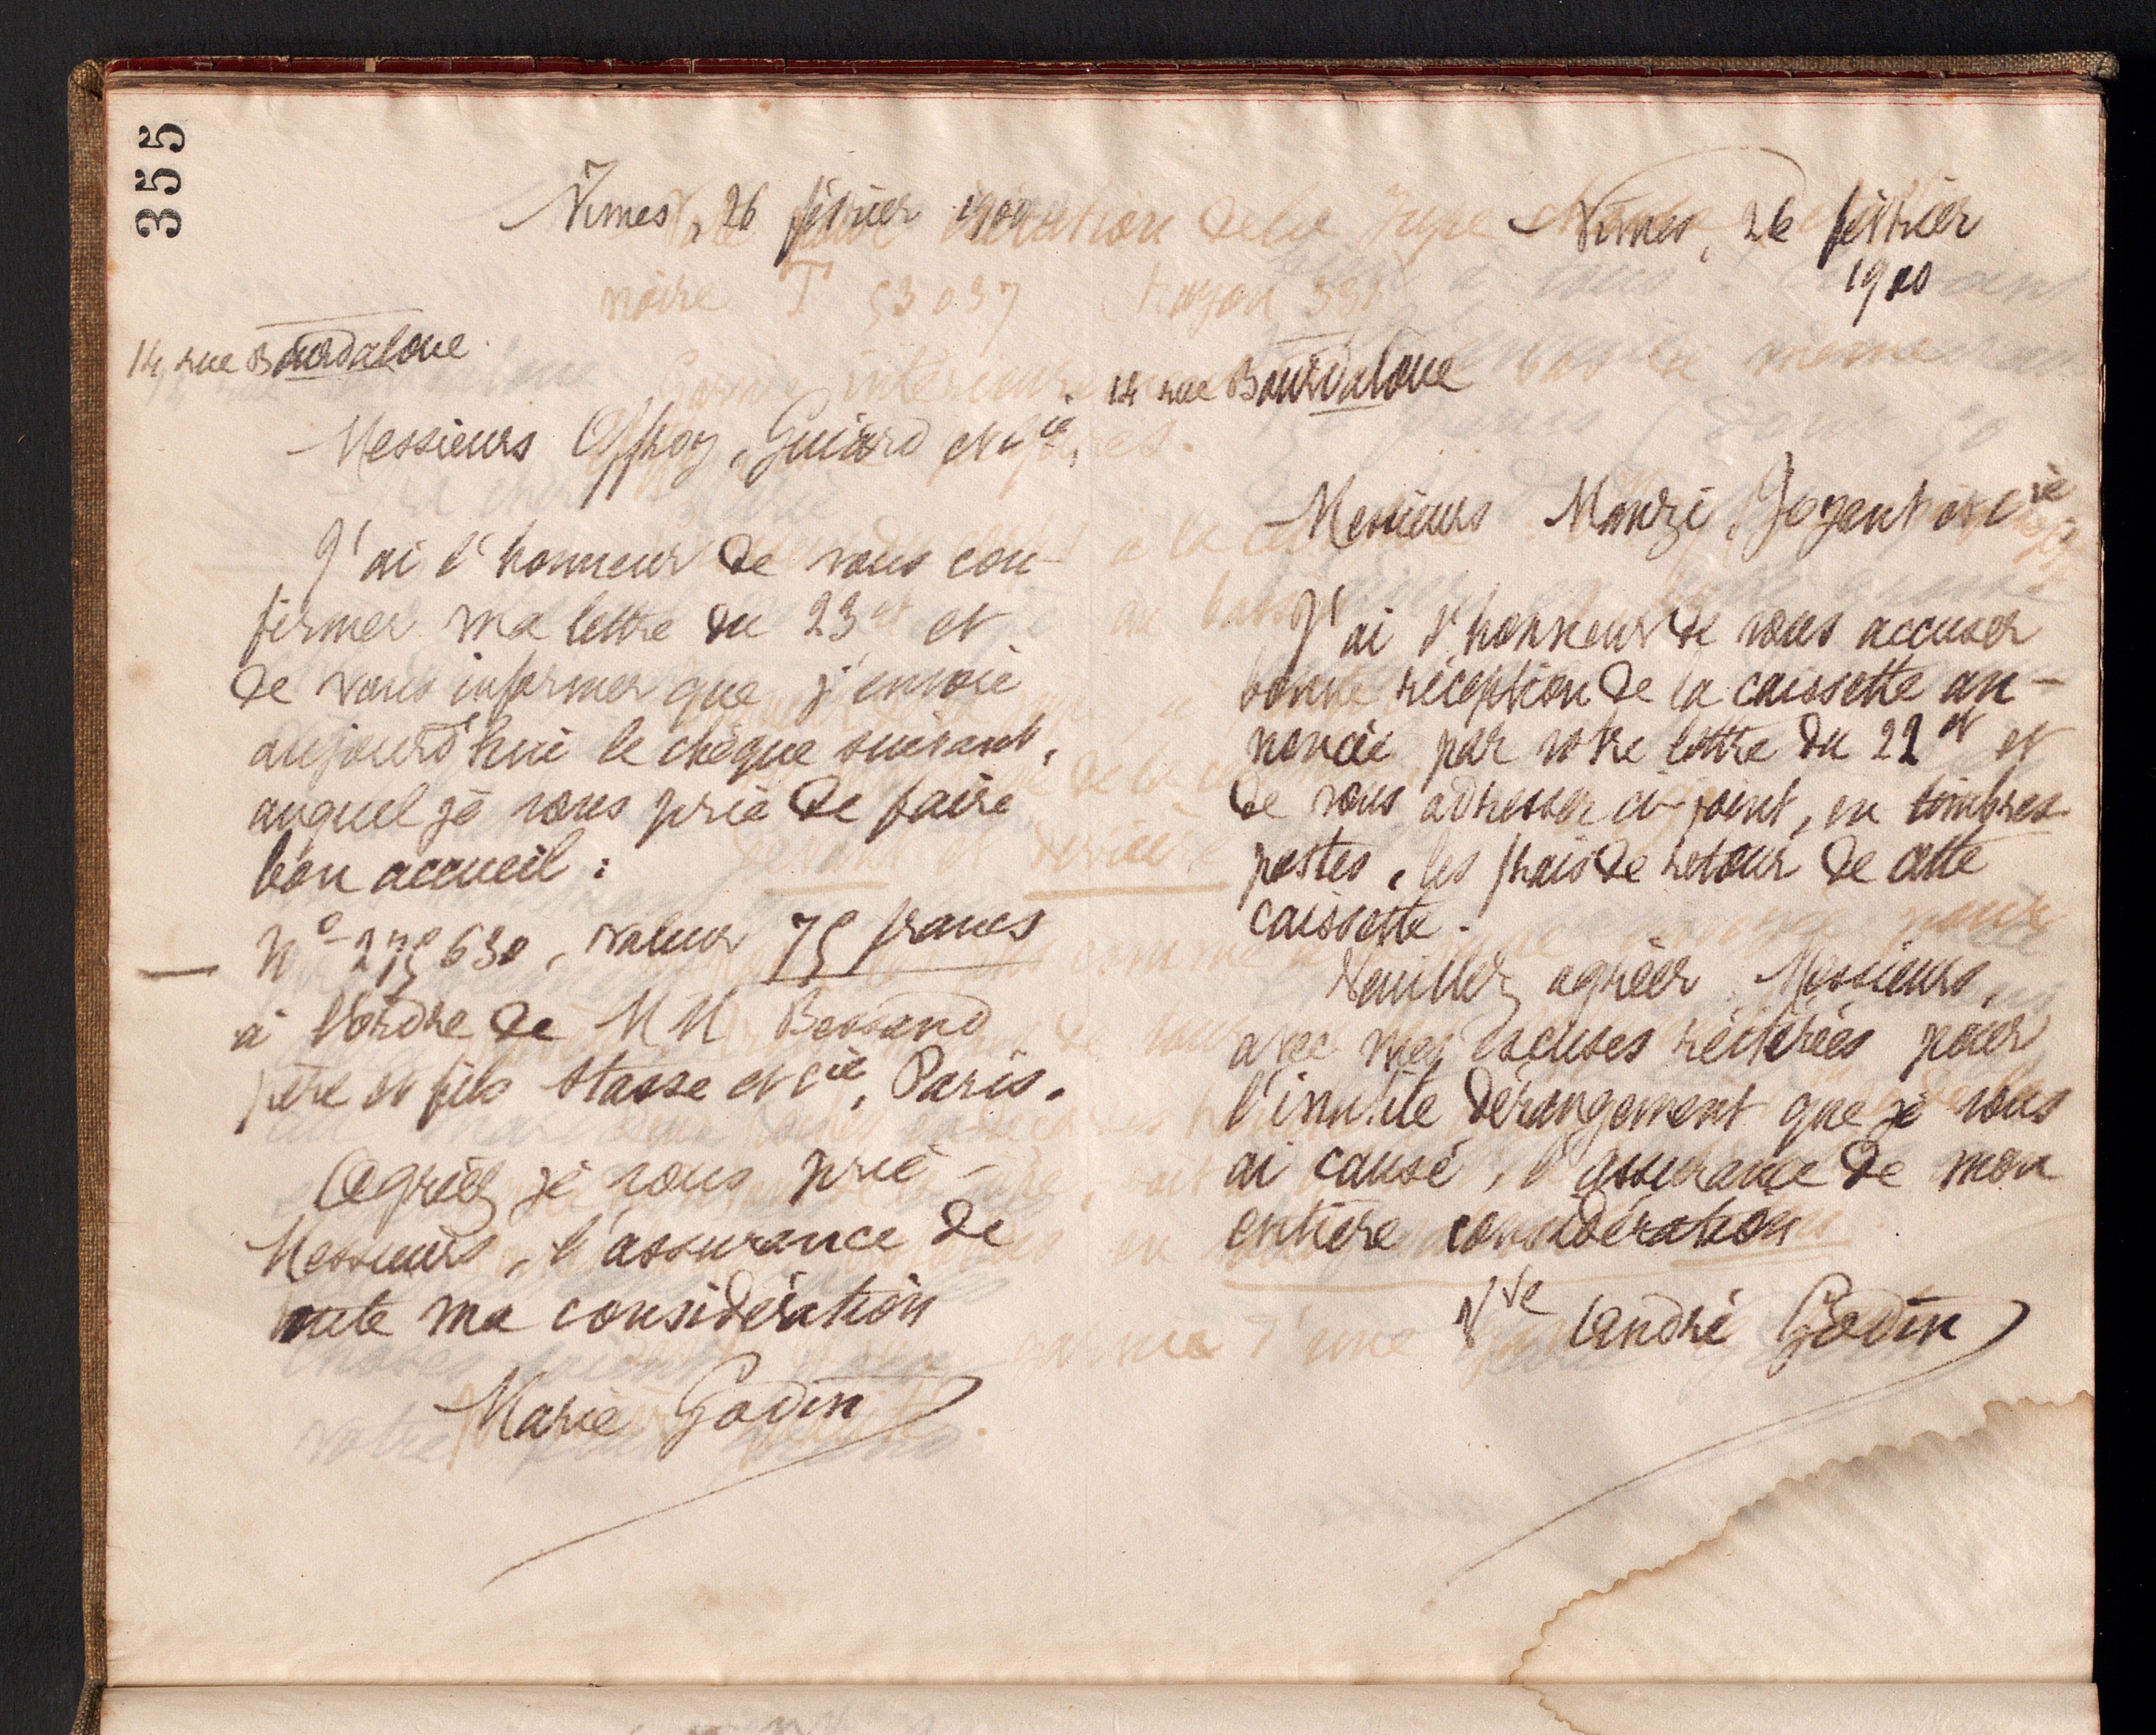 355
Nîmes, 26 février 1900
14 rue Bourdaloue
Messieurs Offroy, Guiard et Cie,
J'ai l'honneur de vous con-
firmer ma lettre du 23 ct et
de vous informer que j'envoie
aujourd'hui le chèque suivant,
auquel je vous prie de faire
bon accueil :
No 275630, valeur 75 francs
à l'ordre de MM Bessand
père et fils Stasse et Cie, Paris.
Agréez je vous prie
Messieurs, l'assurance de
toute ma considération
Marie Godin
Nîmes, 26 février
1900
14 rue Bourdaloue
Messieurs Manzi, Joyant et Cie
J'ai l'honneur de vous accuser
bonne réception de la caissette an-
noncée par votre lettre du 22 ct et
de vous adresser ci-joint, en timbres
postes, les frais de retour de cette
caissette.
Veuillez agréer, Messieurs,
avec mes excuses réitérées pour
l'inutile dérangement que je vous
ai causé, l'assurance de mon
entière considération
Vve André Godin